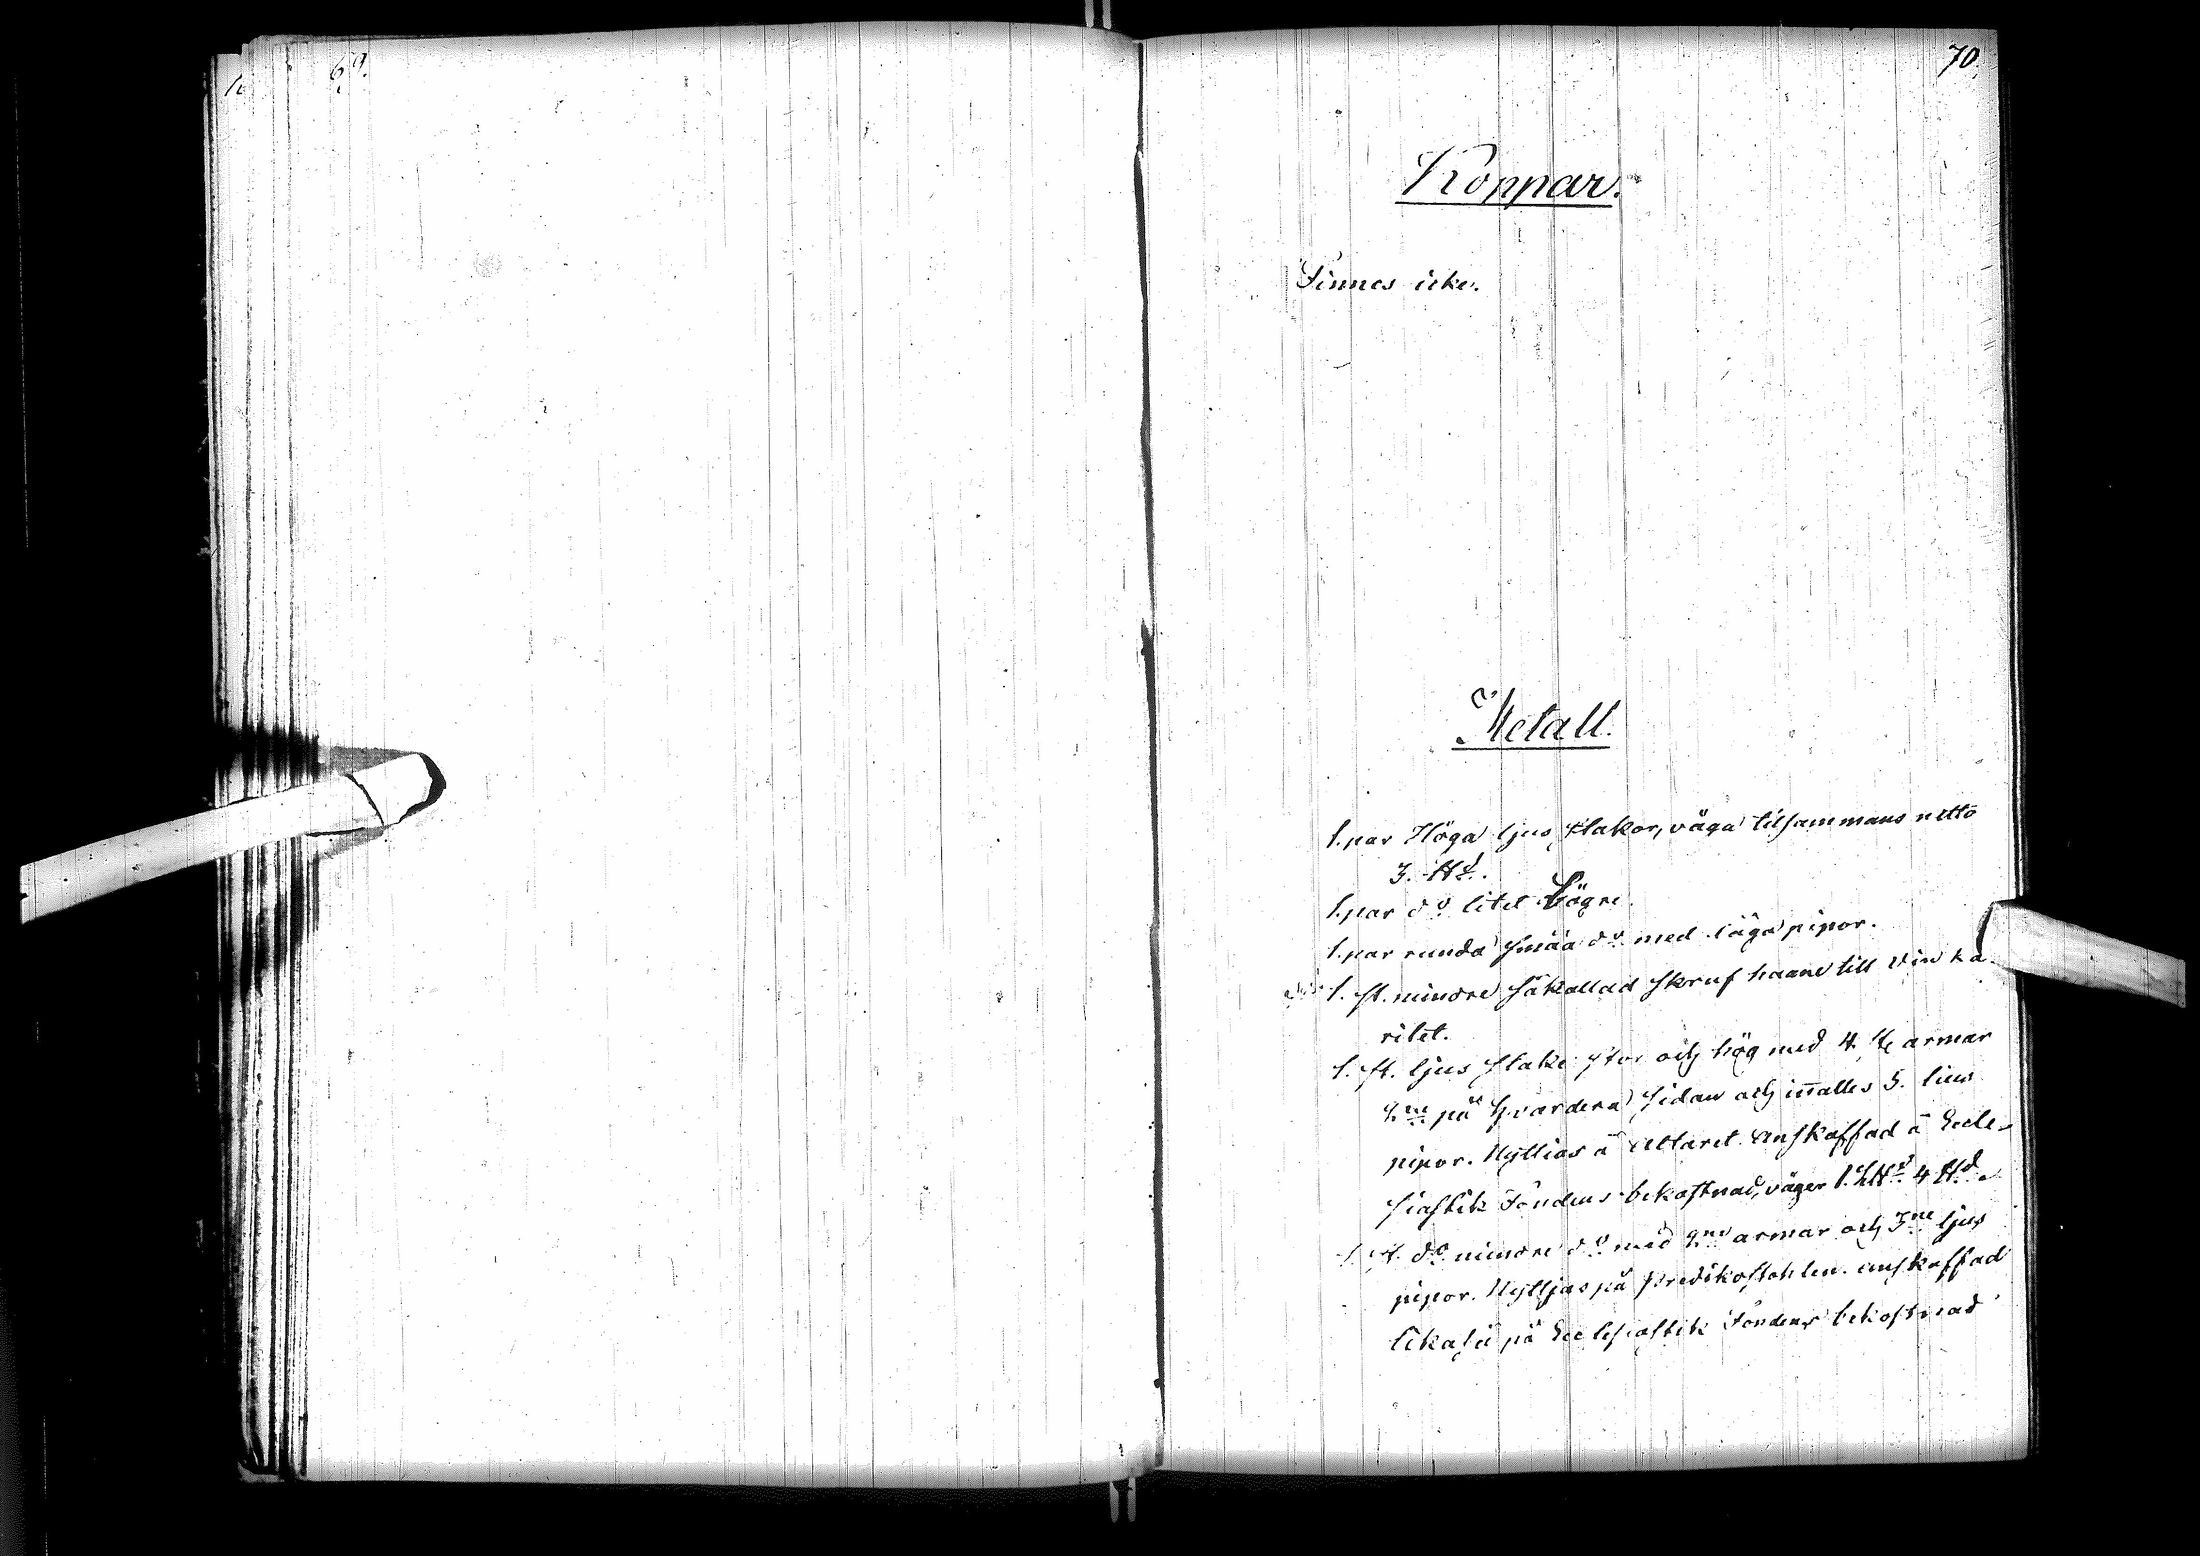 69.
70.
Koppar.
Finnes icke.
Metall.
1. par Höga ljus stakar, väga tilsammans netto
3. ℔d.
1. par do litet högre.
1. par runda småa do med låga pipor.
1. st. mindre såkallad skruf haane till vin ka-
rilet.
1. st. ljus stake stor och hög med 4. st armar
2ne på hvardera sidan och inalles 5. lius
pipor. Nyttias å Altaret. anskaffad å Eccle-
siastik Fondens bekostnad, väger 1. L℔d 4 ℔d.
1. st. do mindre do med 2ne armar och 3ne ljus
pipor. Nyttjas på predikostohlen. anskaffad
likaså på Ecclesiastik Fondens bekostnad